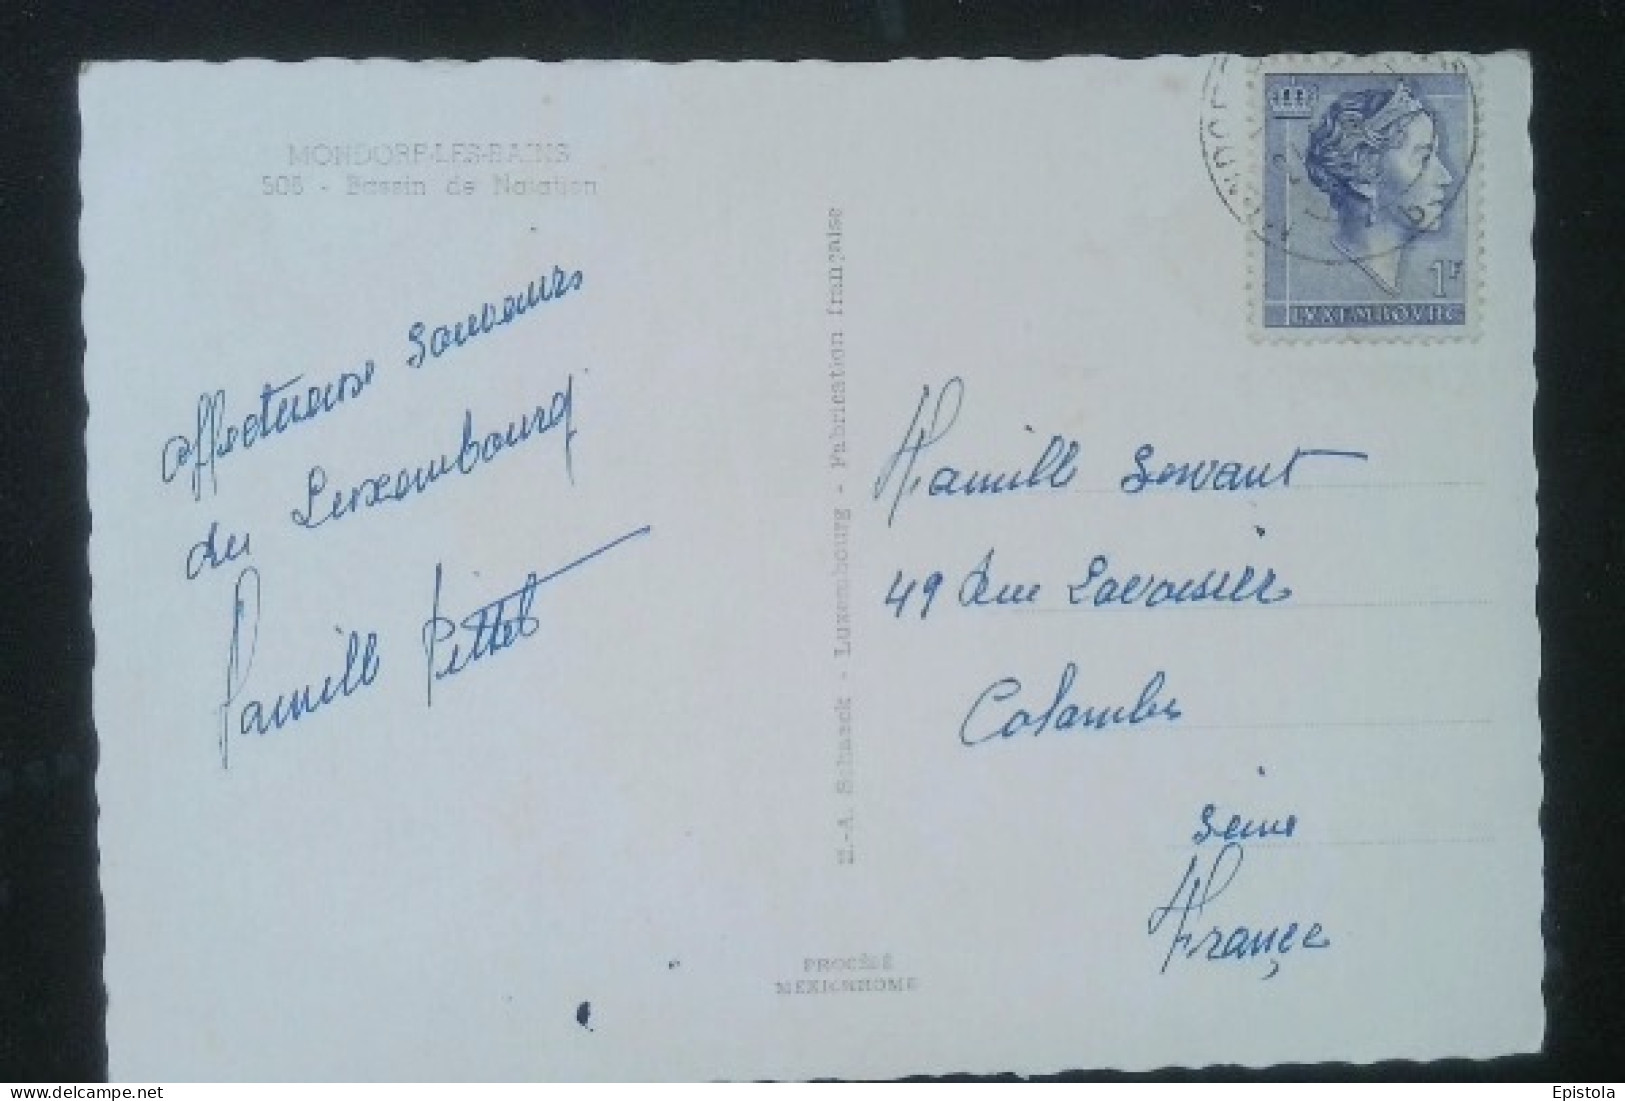 MONDORF-LES-BAINS
506 - Bassin de Natation
affectueux souvenirs
du Luxembourg
Famille Pittet
E.-A. Schaack - Luxembourg - Fabrication française
PROCÉDÉ
MEXICHROME
1F
LVXEMBOVRG
Famille Servant
49 Rue Lavoisier
Colombes
Seine
France
delcampe.net
Epistola